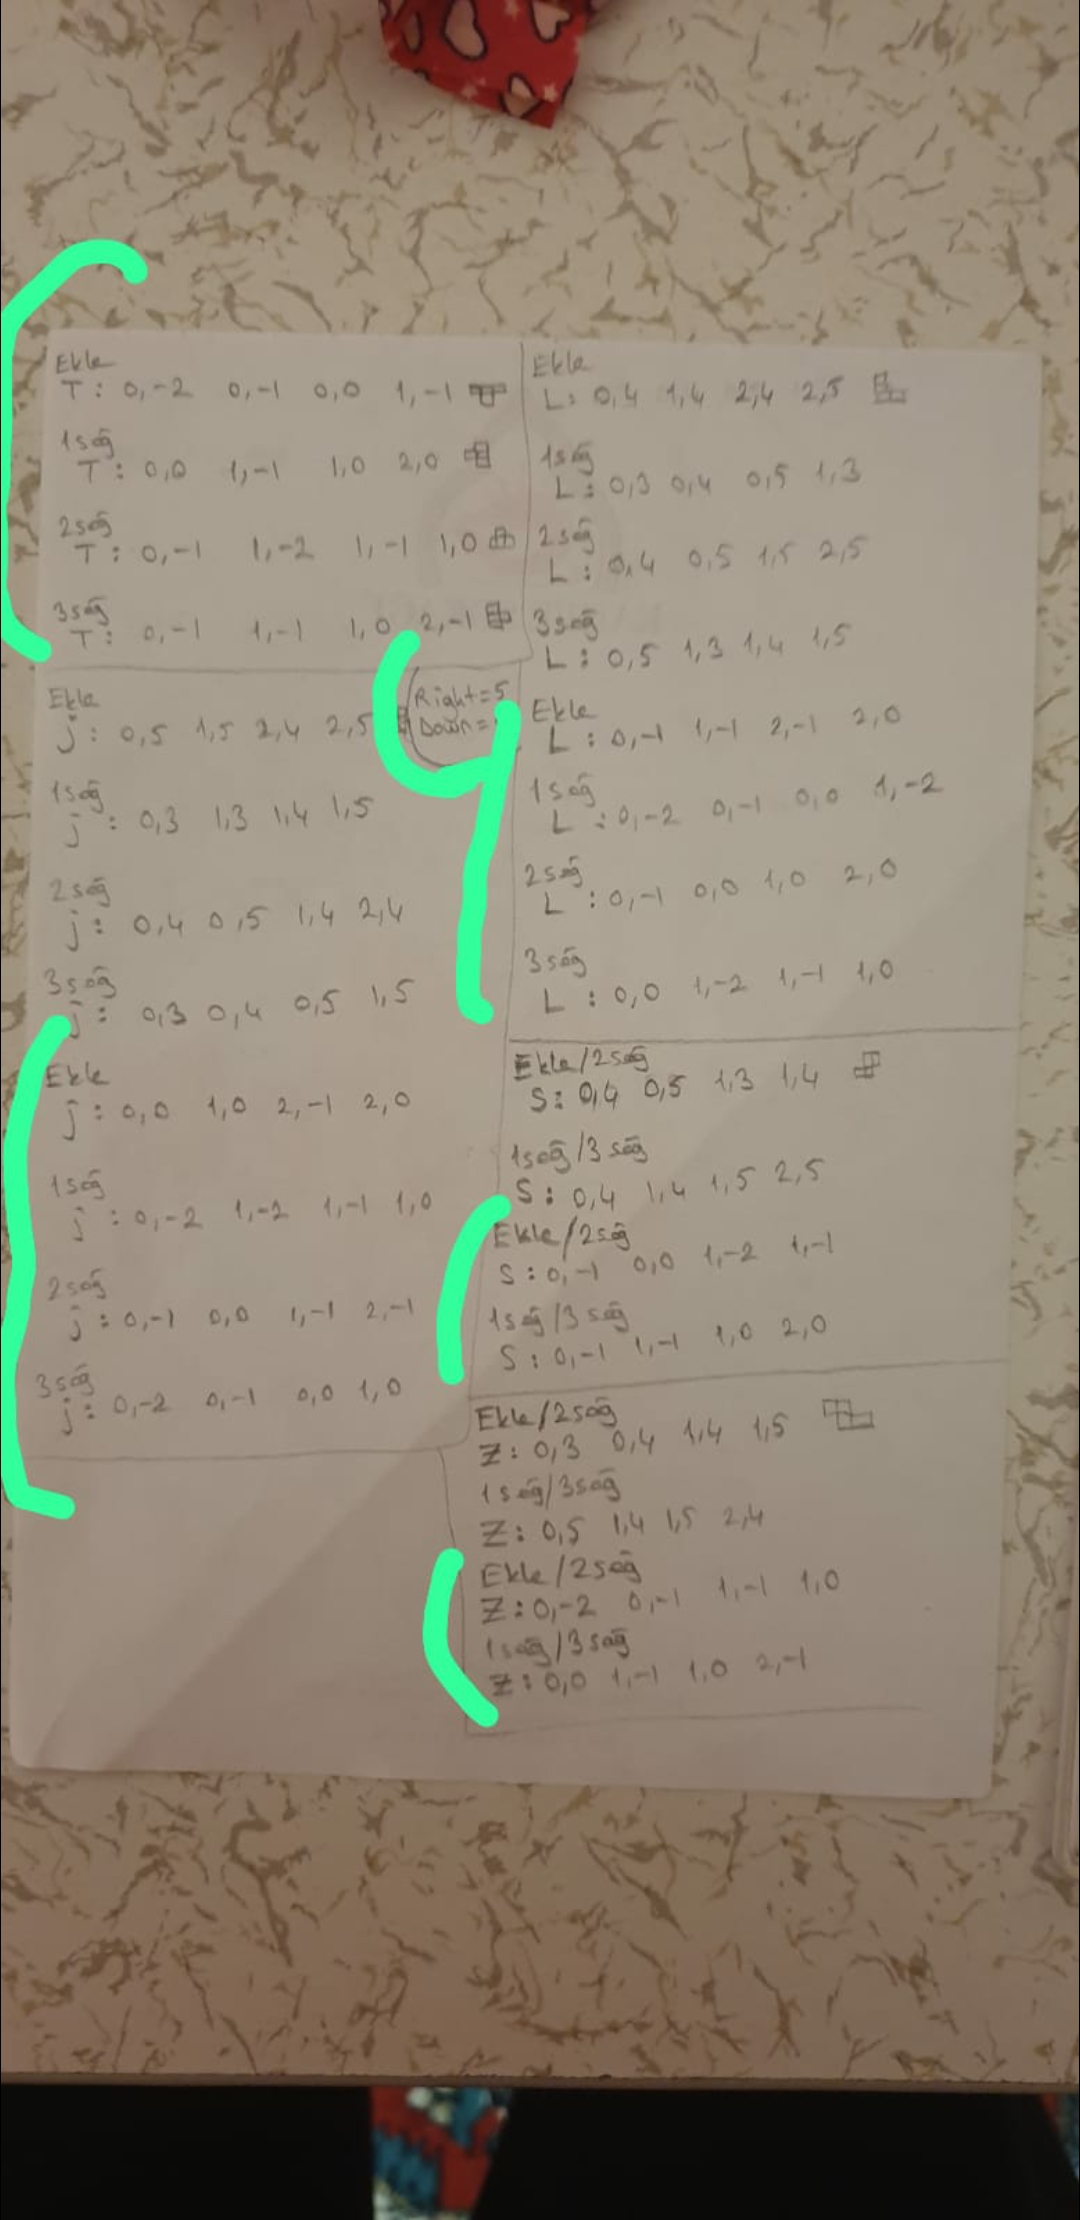 Ekle
T: 0,-2 0,-1 0,0 1,-1
1sağ
T: 0,0 1,-1 1,0 2,0
2sağ
T: 0,-1 1,-2 1,-1 1,0
3sağ
T: 0,-1 1,-1 1,0 2,-1
Ekle
j: 0,5 1,5 2,4 2,5
(Right=5
Down=
1sağ
j: 0,3 1,3 1,4 1,5
2sağ
j: 0,4 0,5 1,4 2,4
3sağ
j: 0,3 0,4 0,5 1,5
Ekle
j: 0,0 1,0 2,-1 2,0
1sağ
j: 0,-2 1,-2 1,-1 1,0
2sağ
j: 0,-1 0,0 1,-1 2,-1
3sağ
j: 0,-2 0,-1 0,0 1,0
Ekle
L: 0,4 1,4 2,4 2,5
1sağ
L: 0,3 0,4 0,5 1,3
2sağ
L: 0,4 0,5 1,5 2,5
3sağ
L: 0,5 1,3 1,4 1,5
Ekle
L: 0,-1 1,-1 2,-1 2,0
1sağ
L: 0,-2 0,-1 0,0 1,-2
2sağ
L: 0,-1 0,0 1,0 2,0
3sağ
L: 0,0 1,-2 1,-1 1,0
Ekle/2sağ
S: 0,4 0,5 1,3 1,4
1sağ/3sağ
S: 0,4 1,4 1,5 2,5
Ekle/2sağ
S: 0,-1 0,0 1,-2 1,-1
1sağ/3sağ
S: 0,-1 1,-1 1,0 2,0
Ekle/2sağ
Z: 0,3 0,4 1,4 1,5
1sağ/3sağ
Z: 0,5 1,4 1,5 2,4
Ekle/2sağ
Z: 0,-2 0,-1 1,-1 1,0
1sağ/3sağ
Z: 0,0 1,-1 1,0 2,-1